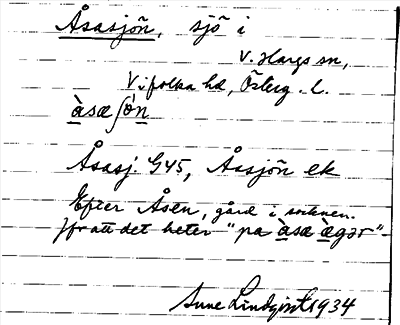 Åsasjön, sjö i
V. Hargs sn,
Vifolka hd, Österg. l.
àsæʃǿn
Åsasj. G45, Åssjön ek
Efter Åsen, gård i socknen.
Jfr att det heter "på àsæ ägər"
Sune Lindqvist 1934